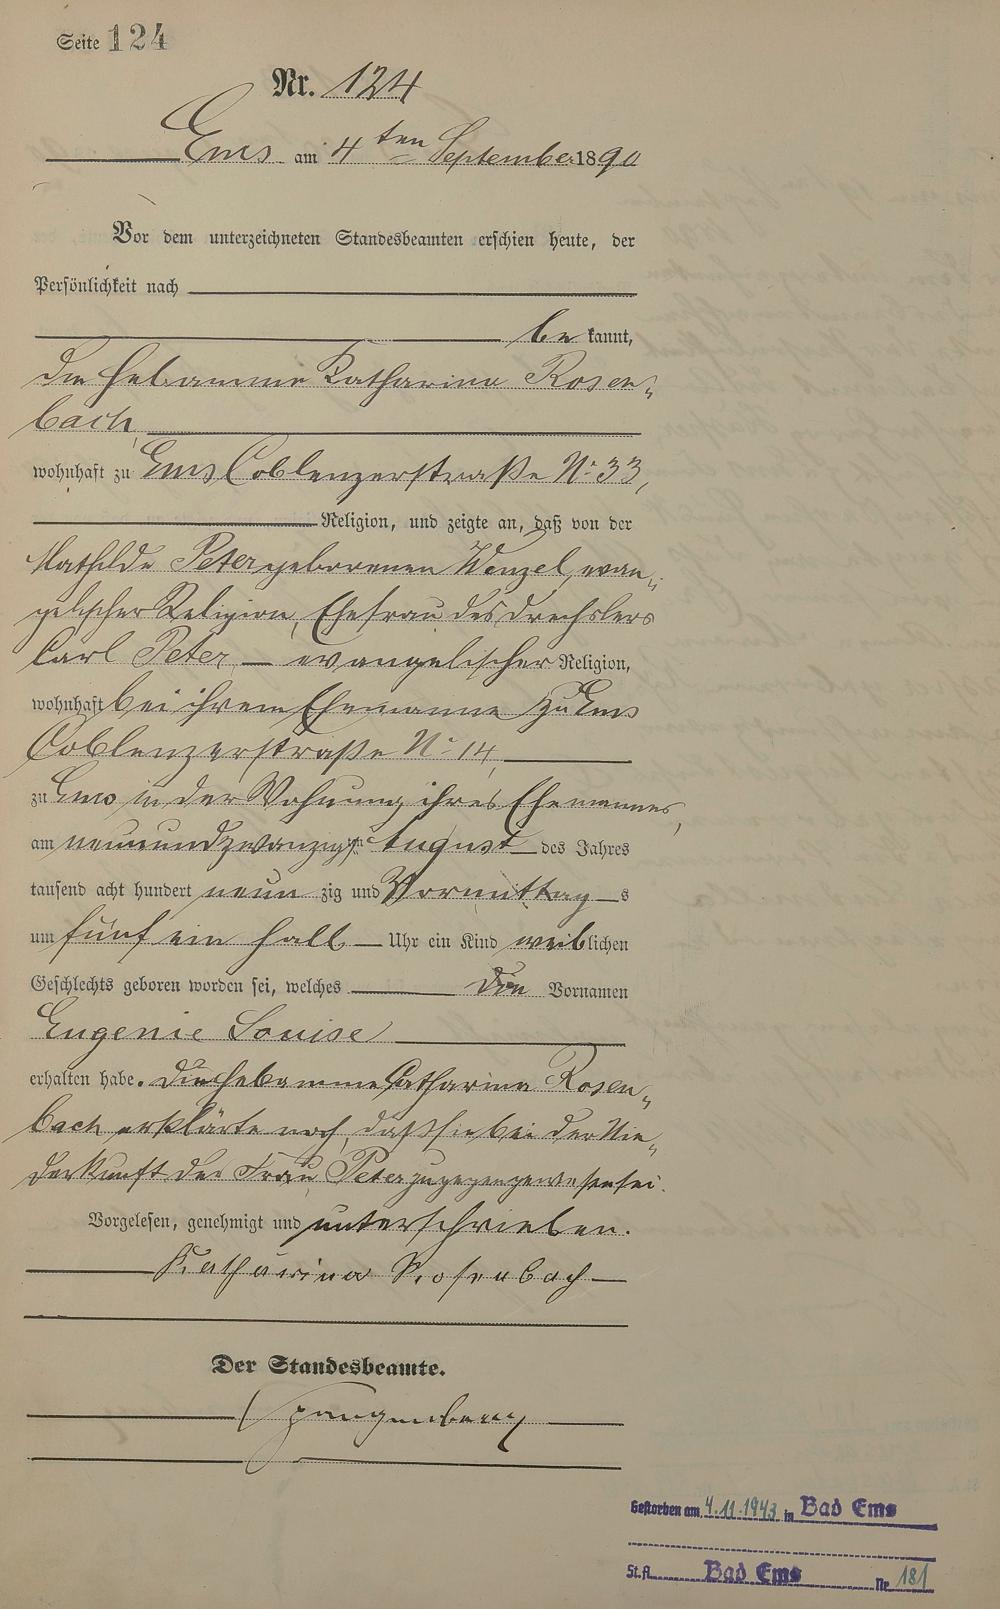 Seite 124
Nr. 124
Ems am 4ten September 1890
Vor dem unterzeichneten Standesbeamten erschien heute, der
Persönlichkeit nach
be kannt,
die Hebamme Katharina Rosen„
bach,
wohnhaft zu Ems Coblenzerstraße No 33,
Religion, und zeigte an, daß von der
Mathilde Peter geborenen Wenzel, evan„
gelischer Religion, Ehefrau des Drechslers
Carl Peter evangelischer Religion,
wohnhaft bei ihrem Ehemanne zu Ems
Coblenzerstraße No 14,
zu Ems in der Wohnung ihres Ehemannes,
am neunundzwanzigsten August des Jahres
tausend acht hundert neun zig und Vormittag s
um fünf ein halb Uhr ein Kind weiblichen
Geschlechts geboren worden sei, welches die Vornamen
Eugenie Louise
erhalten habe. Die Hebamme Catharina Rosen„
bach erklärte noch, daß sie bei der Nie„
derkunft der Frau Peter zugegen gewesen sei.
Vorgelesen, genehmigt und unterschrieben.
Katharina Rosenbach
Der Standesbeamte.
Spangenberg
Gestorben am 4.11.1943 in Bad Ems
St.A. Bad Ems Nr 181